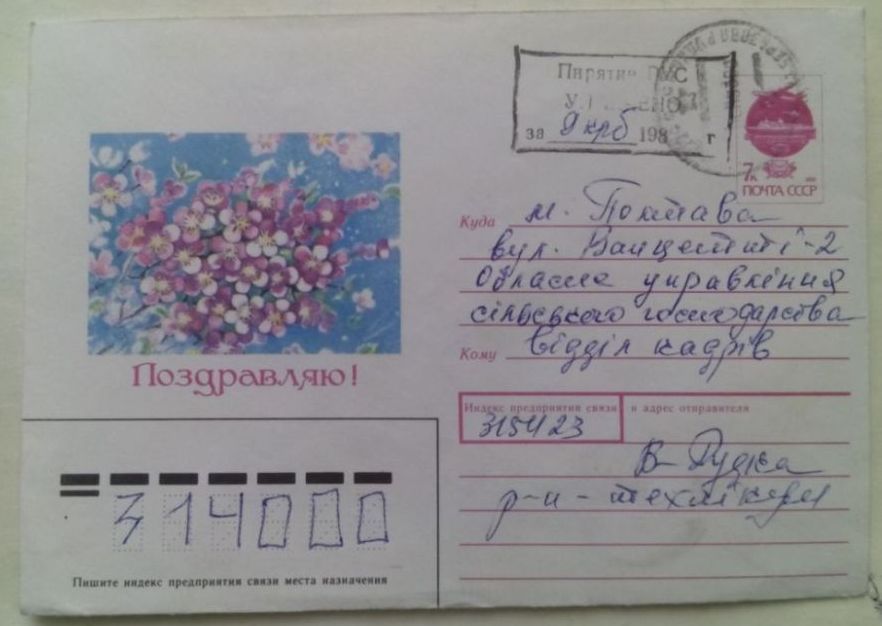 Пирятин РУС
за 9 крб 198 г
7к
ПОЧТА СССР
Куда м. Полтава
вул.
Обласне управління
сільського господарства
Кому Відділ кадрів
Поздравляю!
Индекс предприятия связи и адрес отправителя
315423
В-Рудка
р-н - технікум
314000
Пишите индекс предприятия связи места назначения